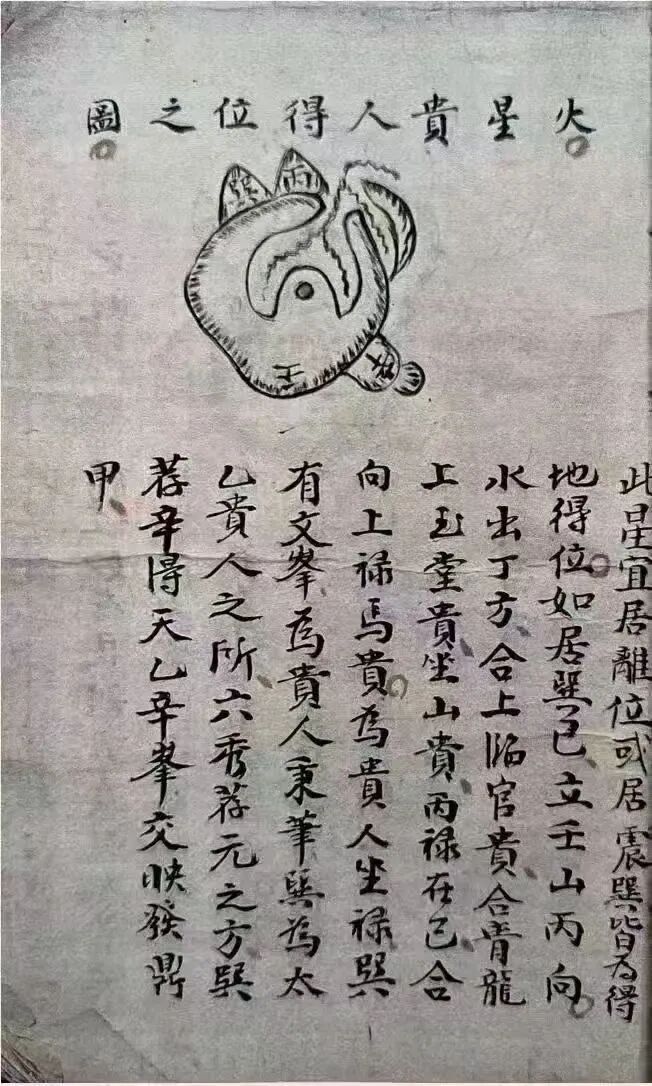 火星貴人得位之圖
巽
丙
癸
壬
此星宜居離位或居震巽皆為得
地得位如居巽巳立壬山丙向
水出丁方合上臨官貴合青龍
上玉堂貴坐山貴丙禄在巳合
向上禄馬貴為貴人坐禄巽
有文峯為貴人秉筆巽為太
乙貴人之所六秀荐元之方巽
荐辛得天乙辛峯交映發鼎
甲